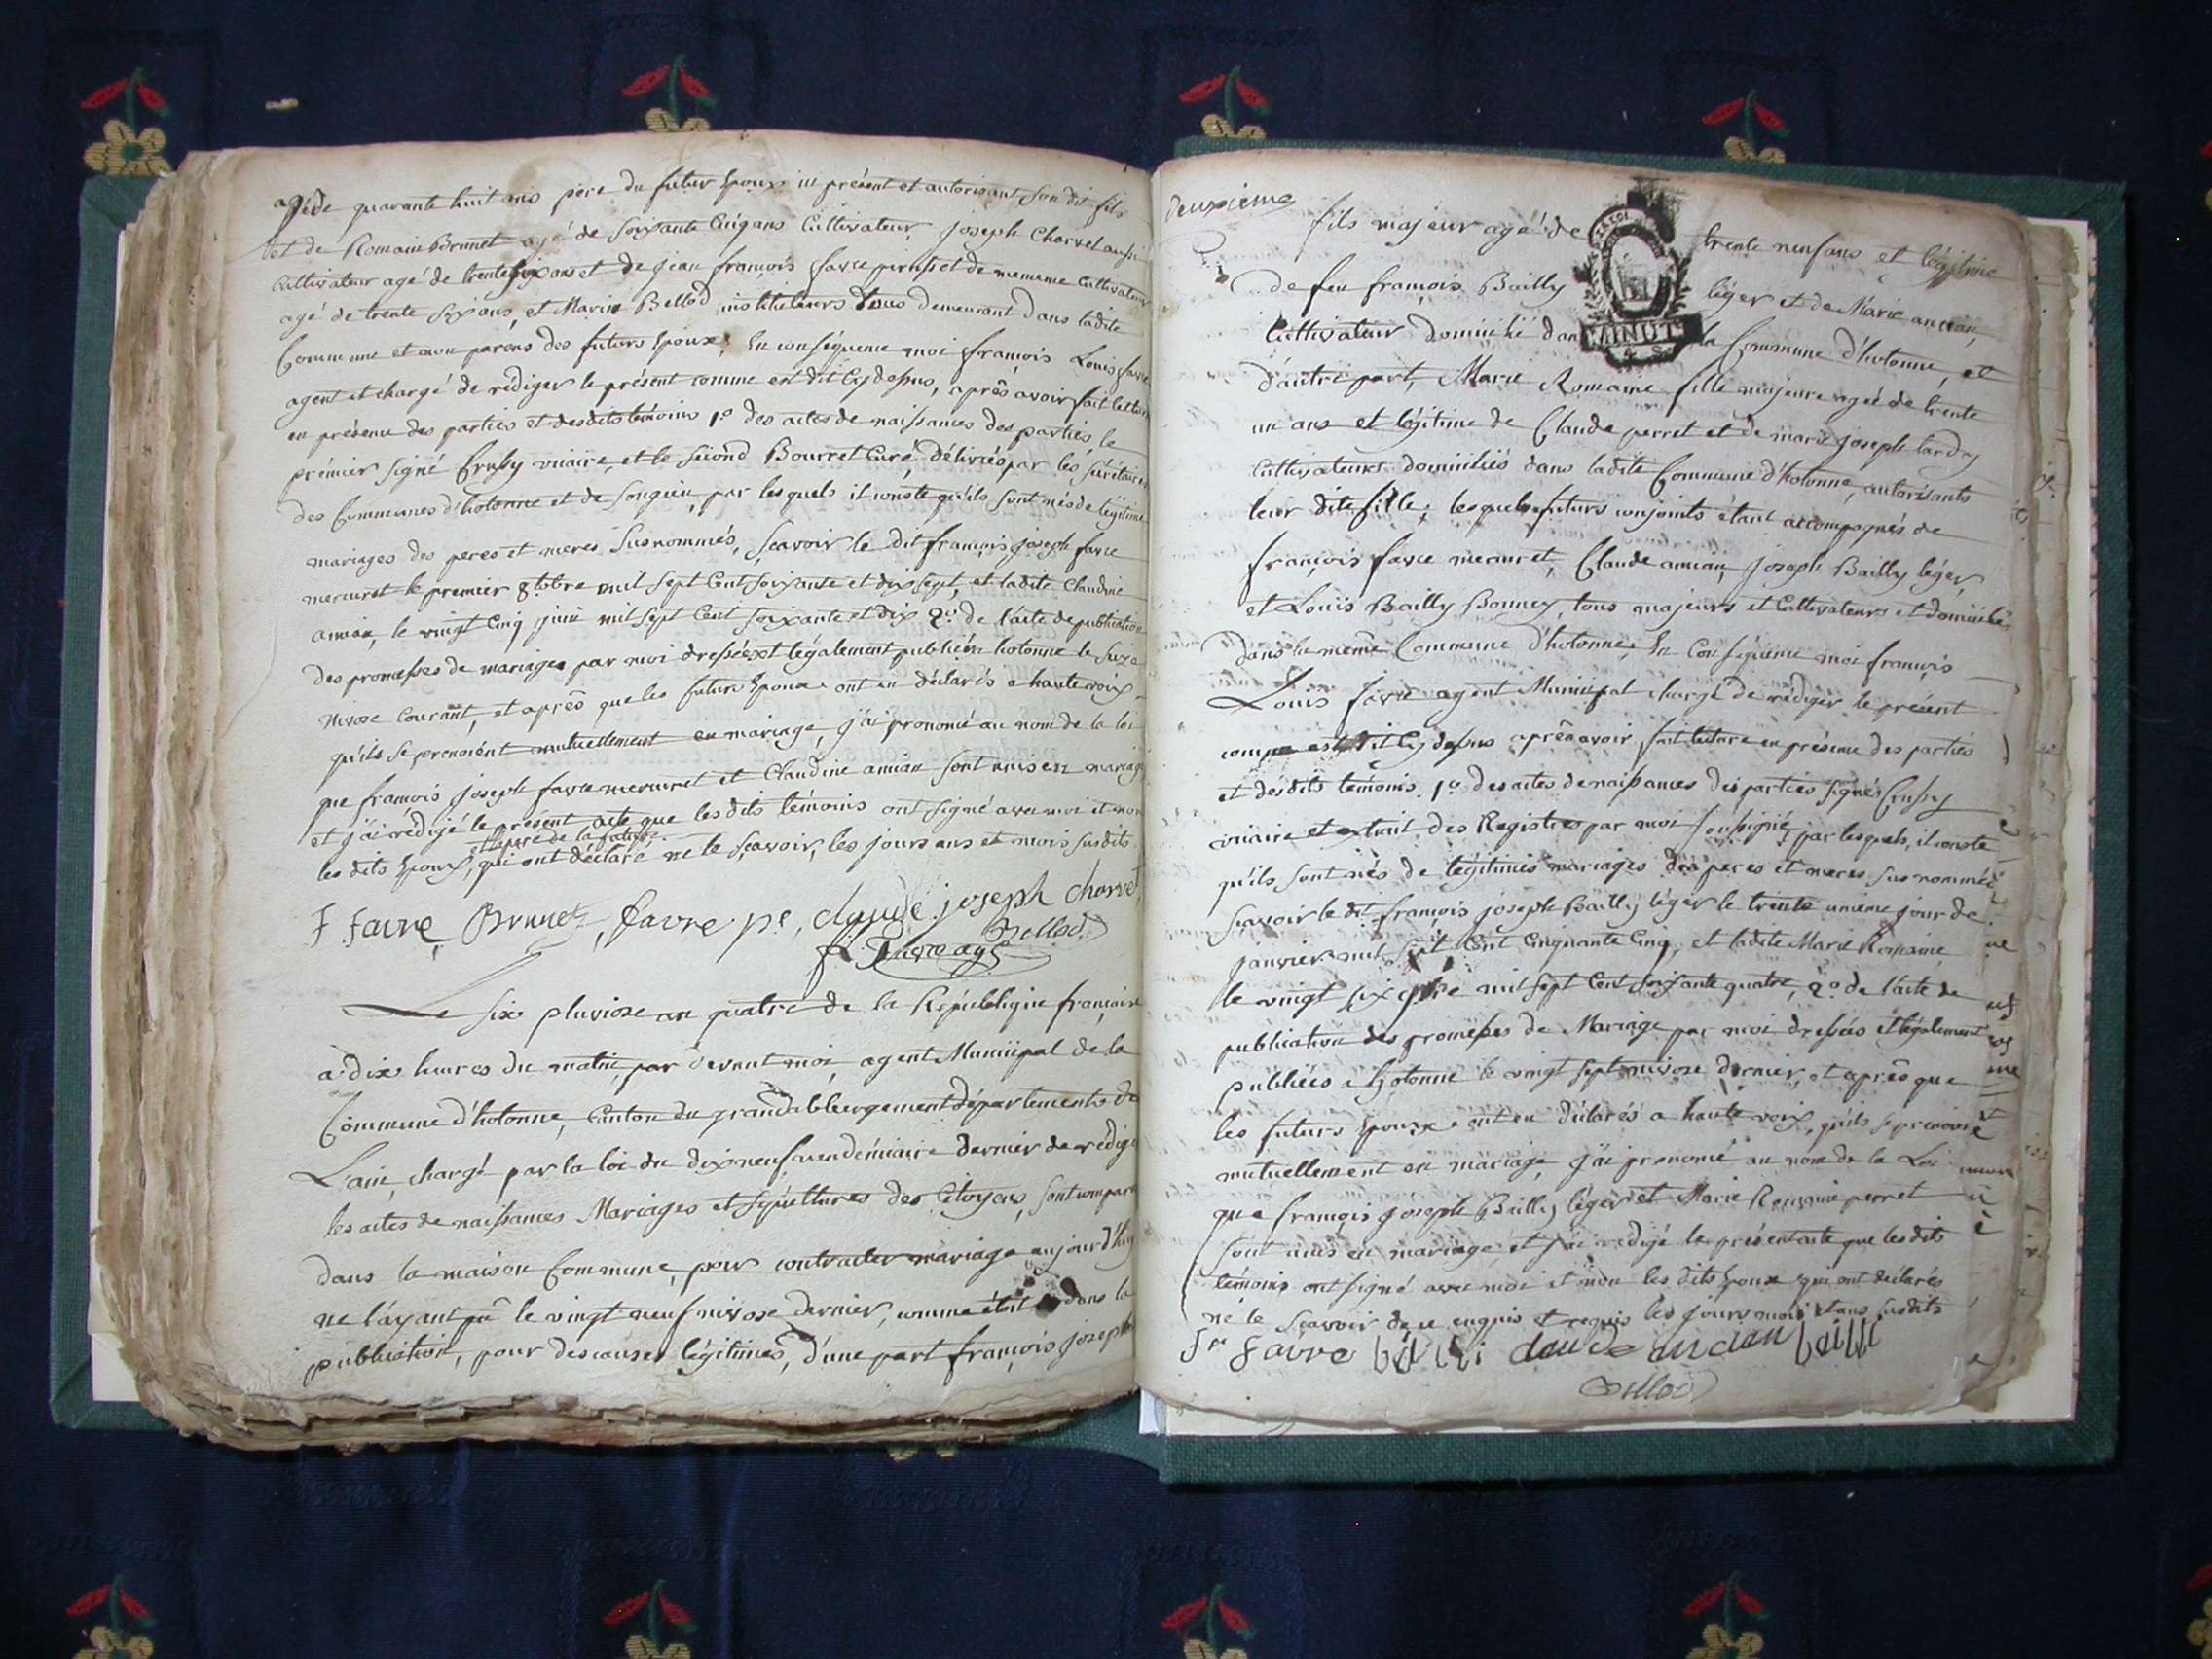 agé de quarante huit ans pere du futur Epoux ici présent et autorisant son dit fils
et de Romain Brunet agé de soixante Cinq ans Cultivateur, joseph Charvet aussi
Cultivateur agé de trente six ans et de jean françois favre pernoset de mememe Cultivateur
agé de trente six ans, et Marin Bellod instituteurs tous demeurant dans ladite
Commune et non parens des futurs Epoux. En conséquence moi françois Louis favre
agent et chargé de rédiger le présent comme est dit Cy dessus, après avoir fait lecture
en présence des parties et desdits témoins 1o des actes de naissances des parties, le
prémier signé Crussy vicaire, et le sécond Bourret Curé, délivrés par les sécrétaires
des Communes d'hotonne et de songieu, par lesquels il conste qu'ils sont nés de légitime
mariages des peres et meres susnommés, sçavoir le dit françois joseph favre
mercuret le premier 8tobre mil sept Cent soixante et dix sept, et ladite Claudine
ancian, le vingt Cinq juin mil sept Cent soixante et dix 2o de l'acte de publication
des promesses de mariages par moi dressée et légalement publiée a hotonne le seize
Nivose Courant, et après que les futurs Epoux ont eu déclarés a haute voix
qu'ils se prenoient mutuellement en mariage, j'ai prononcé au nom de la loi
que françois joseph favre mercuret et Claudine ancian sont unis en mariage
et j'ai rédigé le présent acte que les dits témoins ont signé avec moi et non
et le pere de la future
les dits Epoux, qui ont déclaré ne le sçavoir, les jours ans et mois susdits.
F favre Brunet, favre pt, claude joseph charvet
Bellod
fs favre agt
Le six pluviose an quatre de la République française
a dix heures du matin, par devant moi, agent Municipal de la
Commune d'hotonne, Canton du grand abbergement département de
L'ain, chargé par la loi du dix neuf vendemiaire dernier de rédiger
les actes de naissances Mariages et sépultures des Citoyens, sont comparu
dans la maison Commune, pour contracter mariage aujourd'huy
ne l'ayant pû le vingt neuf nivose dernier, comme étoit dans la
publication, pour des causes légitimes, d'une part françois joseph
deuxième
fils majeur agé de trente neuf ans et légitime
de feu françois Bailly léger et de Marie ancian,
Cultivateur domicilié dans la Commune d'hotonne, et
MINUTE
d'autre part, Marie Romaine fille majeure agée de trente
un ans et légitime de Claude perret et de marie joseph tardy
Cultivateurs domiciliés dans ladite Commune d'hotonne, autorisants
leur dite fille; lesquels futurs conjoints étant accompagnés de
françois favre mercuret, Claude ancian, joseph Bailly léger,
et Louis Bailly Bonney, tous majeurs et Cultivateurs et domiciliés
dans la même Commune d'hotonne. En Conséquence moi françois
Louis favre agent Municipal chargé de rédiger le présent
comme est dit Cy dessus après avoir fait lecture en présence des parties
et desdits témoins 1o des actes de naissances des parties signés Crussy
vicaire et extrait des Registres par moi soussigné, par lesquels, il conste
qu'ils sont nés de légitimes mariages des peres et meres susnommés
sçavoir le dit françois joseph Bailly léger le trente unieme jour de
janvier mil sept Cent Cinquante Cinq, et ladite Marie Romaine
le vingt six mil sept Cent soixante quatre, 2o de l'acte de
publication des promesses de Mariage par moi dressées et légalement
publiées a hotonne le vingt sept nivose dernier, et après que
les futurs Epoux ont eu déclarés a haute voix, qu'ils se prenoient
mutuellement en mariage, j'ai prononcé au nom de la Loi
que françois joseph Bailly léger et Marie Romaine perret
sont unis en mariage et j'ai rédigé le présent acte que les dits
témoins ont signé avec moi et non les dits Epoux qui ont déclarés
ne le sçavoir de ce enquis et requis les jours mois et ans susdits
fr favre claude ancian bailli
Bellod